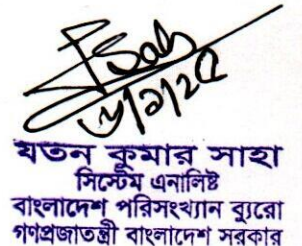 যতন কুমার সাহা
সিস্টেম এনালিষ্ট
বাংলাদেশ পরিসংখ্যান ব্যুরো
গণপ্রজাতন্ত্রী বাংলাদেশ সরকার